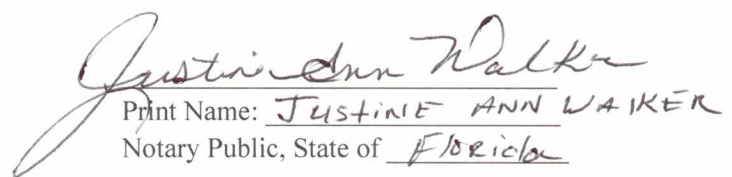 Justine Ann Walker
Print Name: JUSTINE ANN WALKER
Notary Public, State of Florida